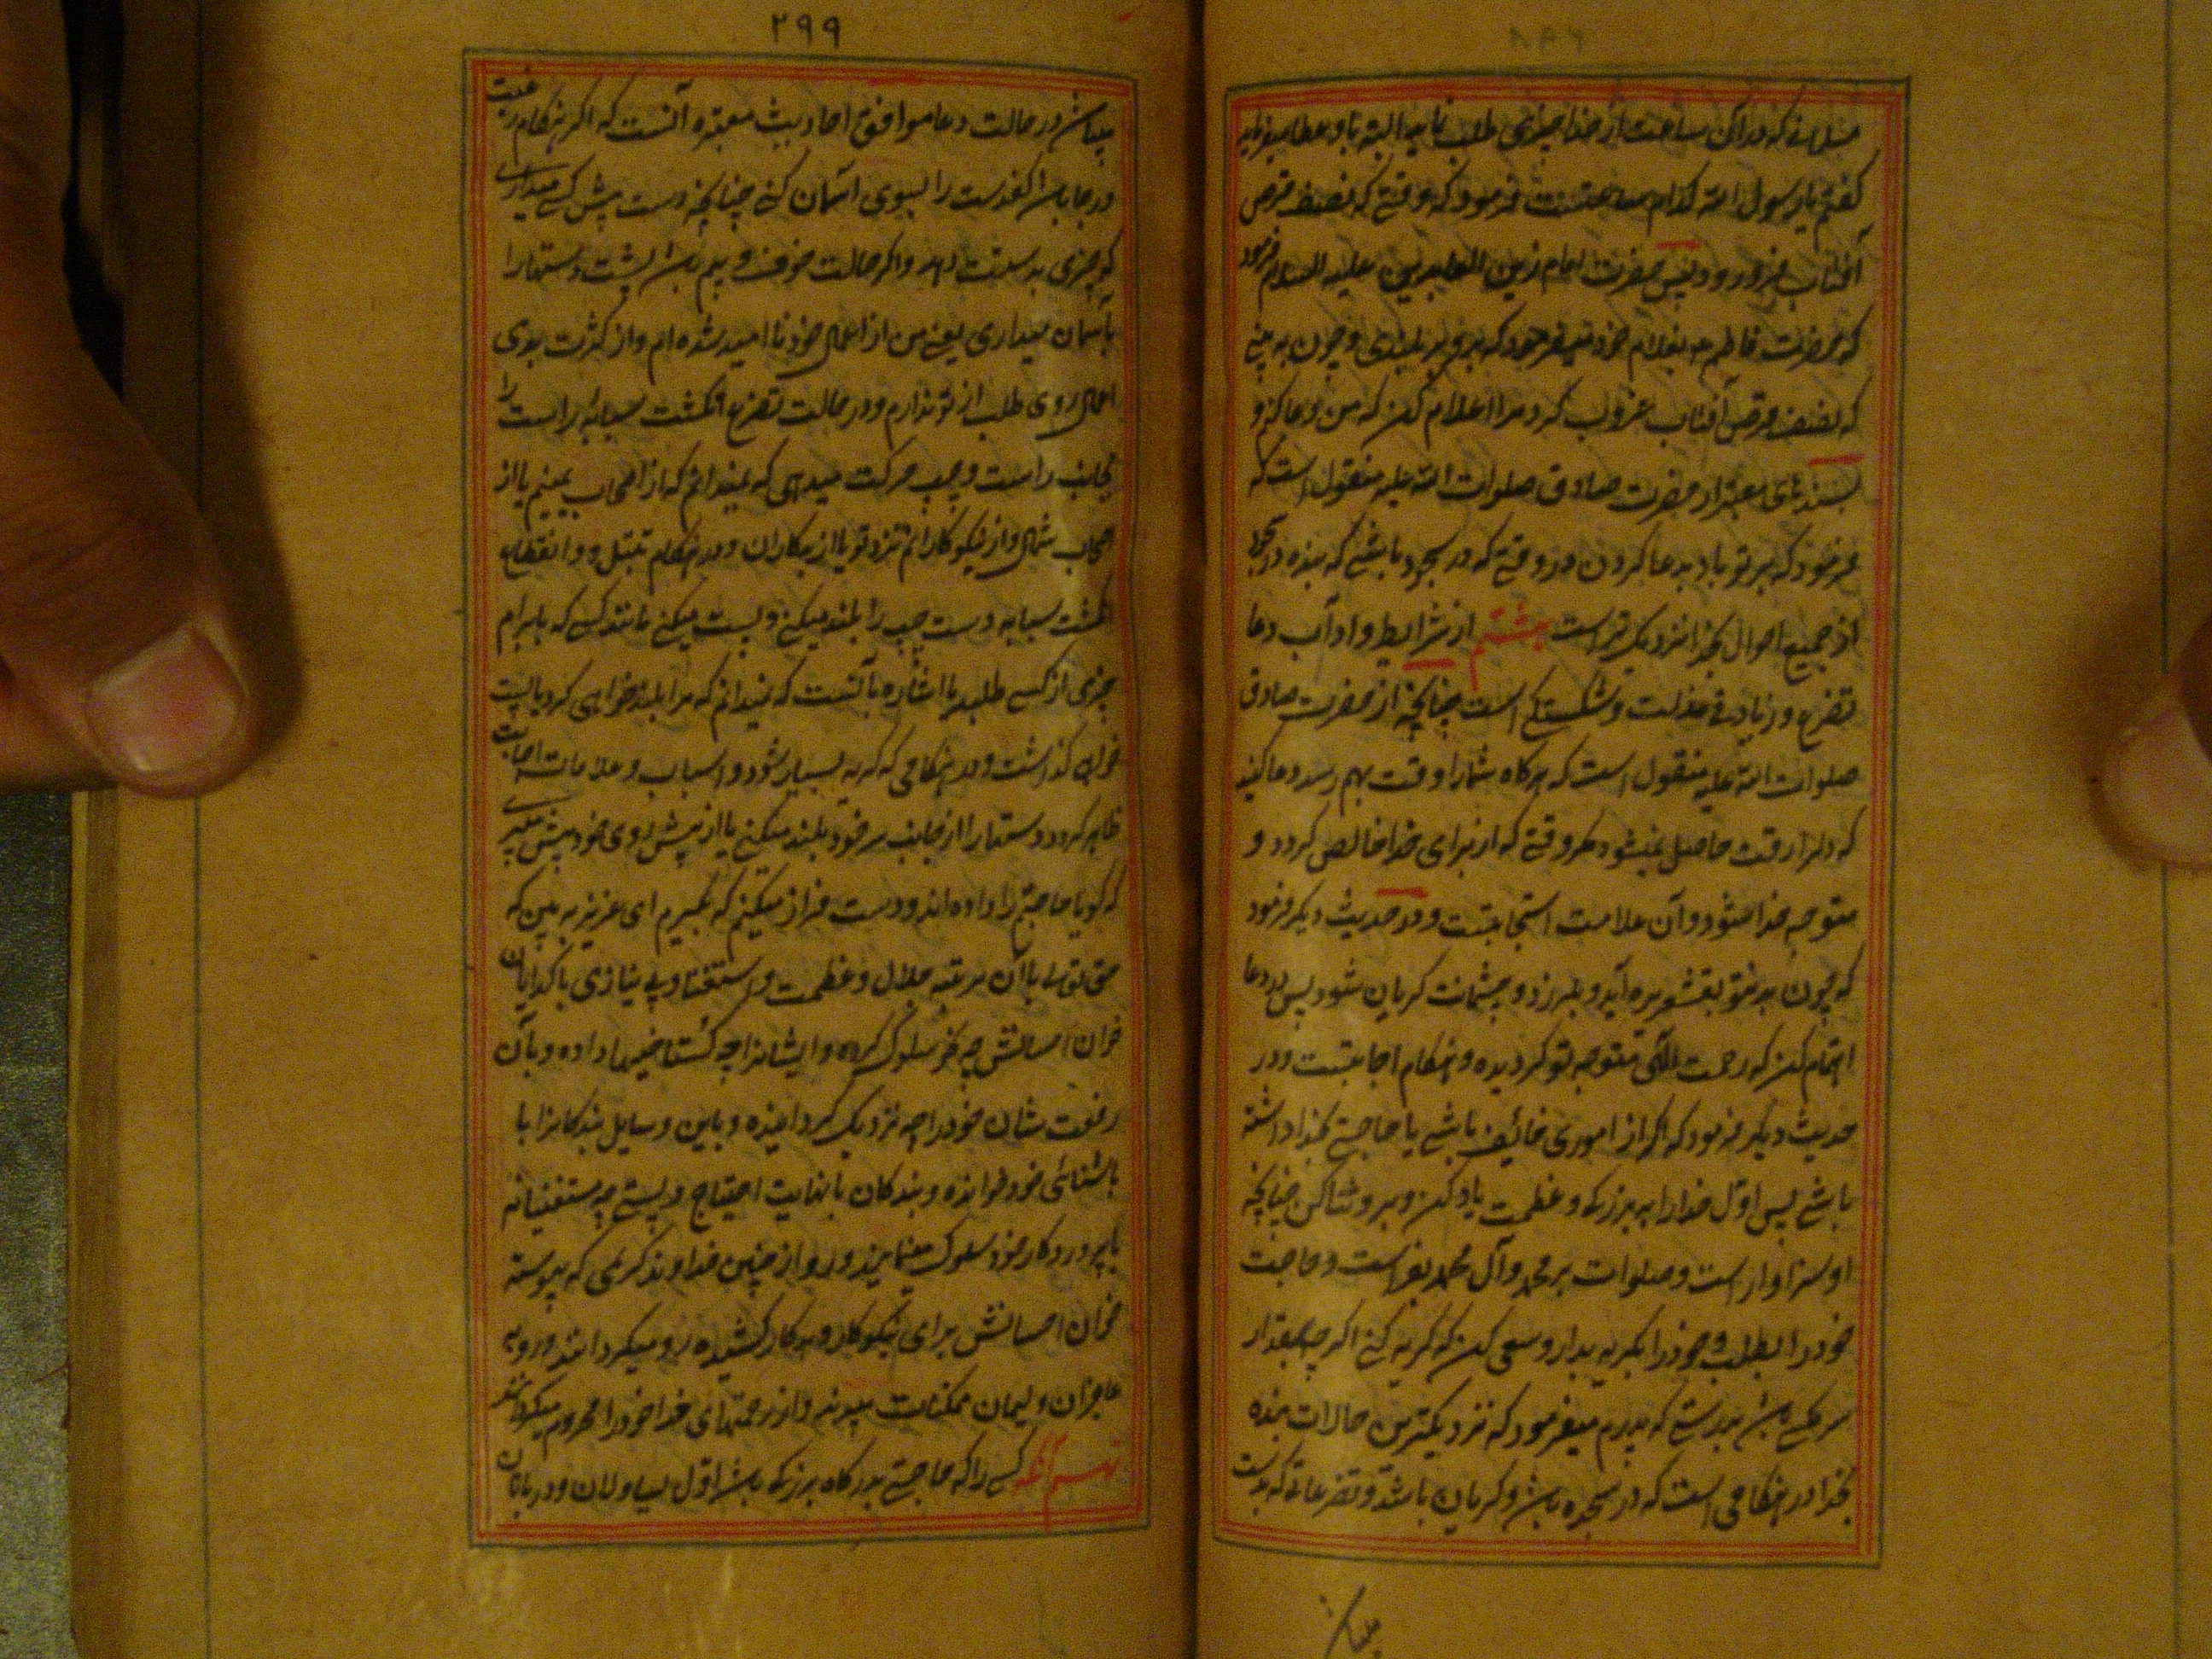 مسلمانی که در آن ساعت از خدا چیزی طلب نماید البته باو عطا میفرماید
گفتم یا رسول الله کدام ساعتست فرمود که وقتی که نصف قرص
آفتاب فرو رود و پس حضرت امام زین العابدین علیه السلام فرمود
که حضرت فاطمه بغلام خود میفرمود که برو بر بلندی و چون به بینی
که نصف قرص آفتاب غروب کرد مرا اعلام کن که من دعا کنم و
بسندهای معتبر از حضرت صادق صلوات الله علیه منقول است که
فرمود که بر تو باد بدعا کردن در وقتی که در سجود باشی که بنده در آنجا
از جمیع احوال بخدا نزدیک تر است هشتم از شرایط و آداب دعا
تضرع و زیادتی مذلت و شکستگی است چنانچه از حضرت صادق
صلوات الله علیه منقول است که هرگاه شما را رقت بهم رسد دعا کنید
که دلرا رقت حاصل نمیشود مگر وقتی که از برای خدا خالص گردد و
متوجه خدا شود و آن علامت استجابتست و در حدیث دیگر فرمود
که چون بدنتو بقشعریره آید و بلرزد و چشمانت گریان شود پس در دعا
اهتمام کن که رحمت الهی متوجه تو گردیده و هنگام اجابتست و در
حدیث دیگر فرمود که اگر از اموری خائف باشی یا حاجتی بخدا داشته
باشی پس اول خدا را به بزرگی و عظمت یاد کن و بر او ثنا کن چنانچه
او سزاوار است و صلوات بر محمد و آل محمد بفرست و حاجت
خود را بطلب و خود را بگریه بدار و سعی کن که گریه کنی اگر چه بمقدار
سر مگسی باشد بدرستی که پدرم میفرمود که نزدیکترین حالات بنده
بخدا در هنگامی است که در سجده باشد و گریان باشد و تضرعاتی که بدست
۲۹۹
میباشد در حالت دعا موافق احادیث معتبره آنست که اگر هنگام رغبت
و رجا باشد کفدست را بسوی آسمان کنی چنانچه دست پیش کسی میداری
که چیزی بدستت دهد و اگر حالت خوف و بیم باشد پشت دستها را
بآسمان میداری یعنی من از اعمال خود ناامید شده ام و از کثرت بدی
اعمال روی طلب از تو ندارم و در حالت تضرع انگشت سبابه راست را
بجانب راست و چپ حرکت میدهی که نمیدانم که از اصحاب یمینم یا از
اصحاب شمال و از نیکوکارانم نزد تو یا از بدکاران و در هنگام تبتل و انقطاع
انگشت سبابه دست چپ را بلند میکنی و پست میکنی مانند کسی که بابرام
چیزی از کسی طلبد یا اشاره بآنست که نمیدانم که مرا بلند خواهی کرد یا پست
خواهی گذاشت و در هنگامی که گریه بسیار شود و اسباب و علامات اجابت
ظاهر گردد دستها را از جانب سر خود بلند میکنی یا از پیش روی خود پیش میبری
که گویا حاجتم را داده اند و دست دراز میکنم که بگیرم ای عزیز به بین که
حق تعالی با آن مرتبه جلال و عظمت و استغنا و بی نیازی با گدایان
خوان احسانش چه نحو سلوک کرده و ایشانرا چه گستاخیها داده و بآن
رفعت شان خود را چه نزدیک گردانیده و باین وسایل بندگانرا با
باشنائی خود خوانده و بندگان با نهایت احتیاج و پستی چه مستغنیانه
با پروردگار خود سلوک مینمایند و رو از چنین خداوند کریمی که پیوسته
خوان احسانش برای نیکوکار و بدکار کشیده رو میگردانند و رو به
عاجزان و لئیمان ممکنات میبرند و از رحمتهای خدا خود را محروم میگردانند
نهم آنکه کسی را که حاجتی بدرگاه بزرگی باشد اول یساولان و دربانان